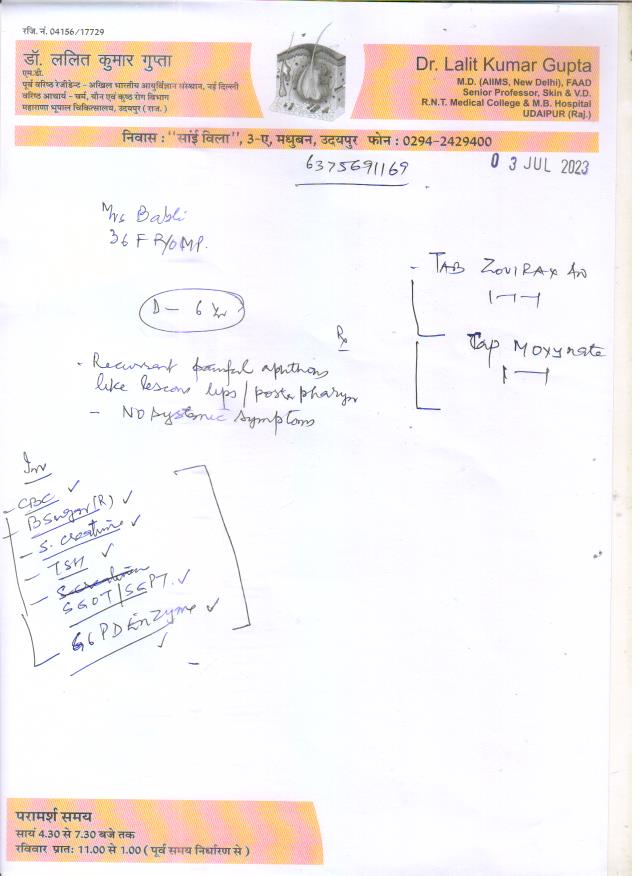 रजि. नं. 04156/17729
डॉ. ललित कुमार गुप्ता
एम.डी.
पूर्व वरिष्ठ रेजीडेन्ट - अखिल भारतीय आयुर्विज्ञान संस्थान, नई दिल्ली
वरिष्ठ आचार्य - चर्म, यौन एवं कुष्ठ रोग विभाग
महाराणा भूपाल चिकित्सालय, उदयपुर ( राज.)
Dr. Lalit Kumar Gupta
M.D. (AIIMS, New Delhi), FAAD
Senior Professor, Skin & V.D.
R.N.T. Medical College & M.B. Hospital
UDAIPUR (Raj.)
निवास : "सांई विला", 3-ए, मधुबन, उदयपुर फोन : 0294-2429400
6375691169
03 JUL 2023
Mrs Babli
36 F R/O MP.
D - 6 yr
Rx
- TAB ZOVIRAX
Cap Moxynate
- Recurrent painful aphthous
like lesions lips / post pharynx
- NO systemic symptoms
Inv
- CBC ✓
- B Sugar (R) ✓
- S. creatinine ✓
- TSH ✓
- SGOT/SGPT ✓
- G6PD Enzyme ✓
परामर्श समय
सायं 4.30 से 7.30 बजे तक
रविवार प्रातः 11.00 से 1.00 ( पूर्व समय निर्धारण से )